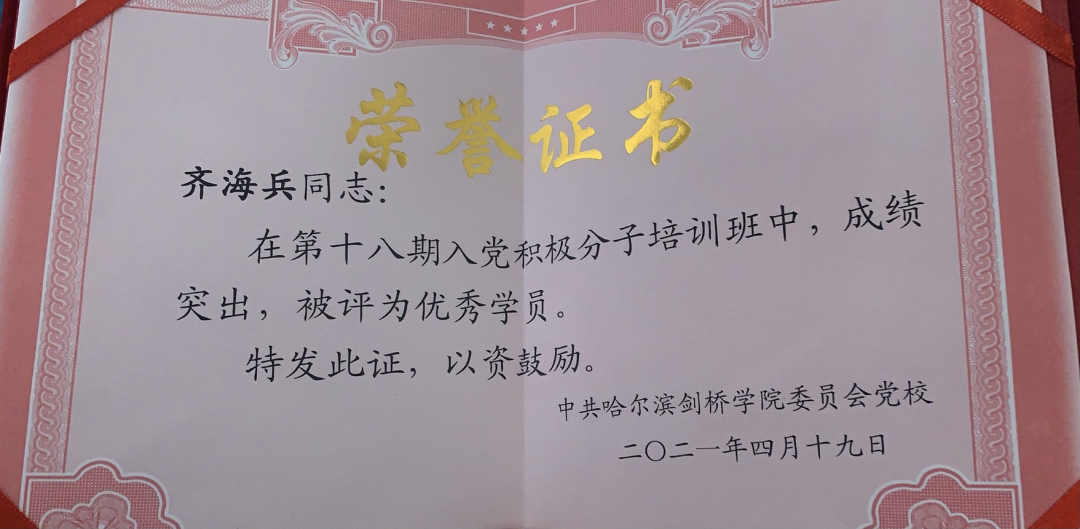 荣誉证书
齐海兵同志：
在第十八期入党积极分子培训班中，成绩
突出，被评为优秀学员。
特发此证，以资鼓励。
中共哈尔滨剑桥学院委员会党校
二〇二一年四月十九日